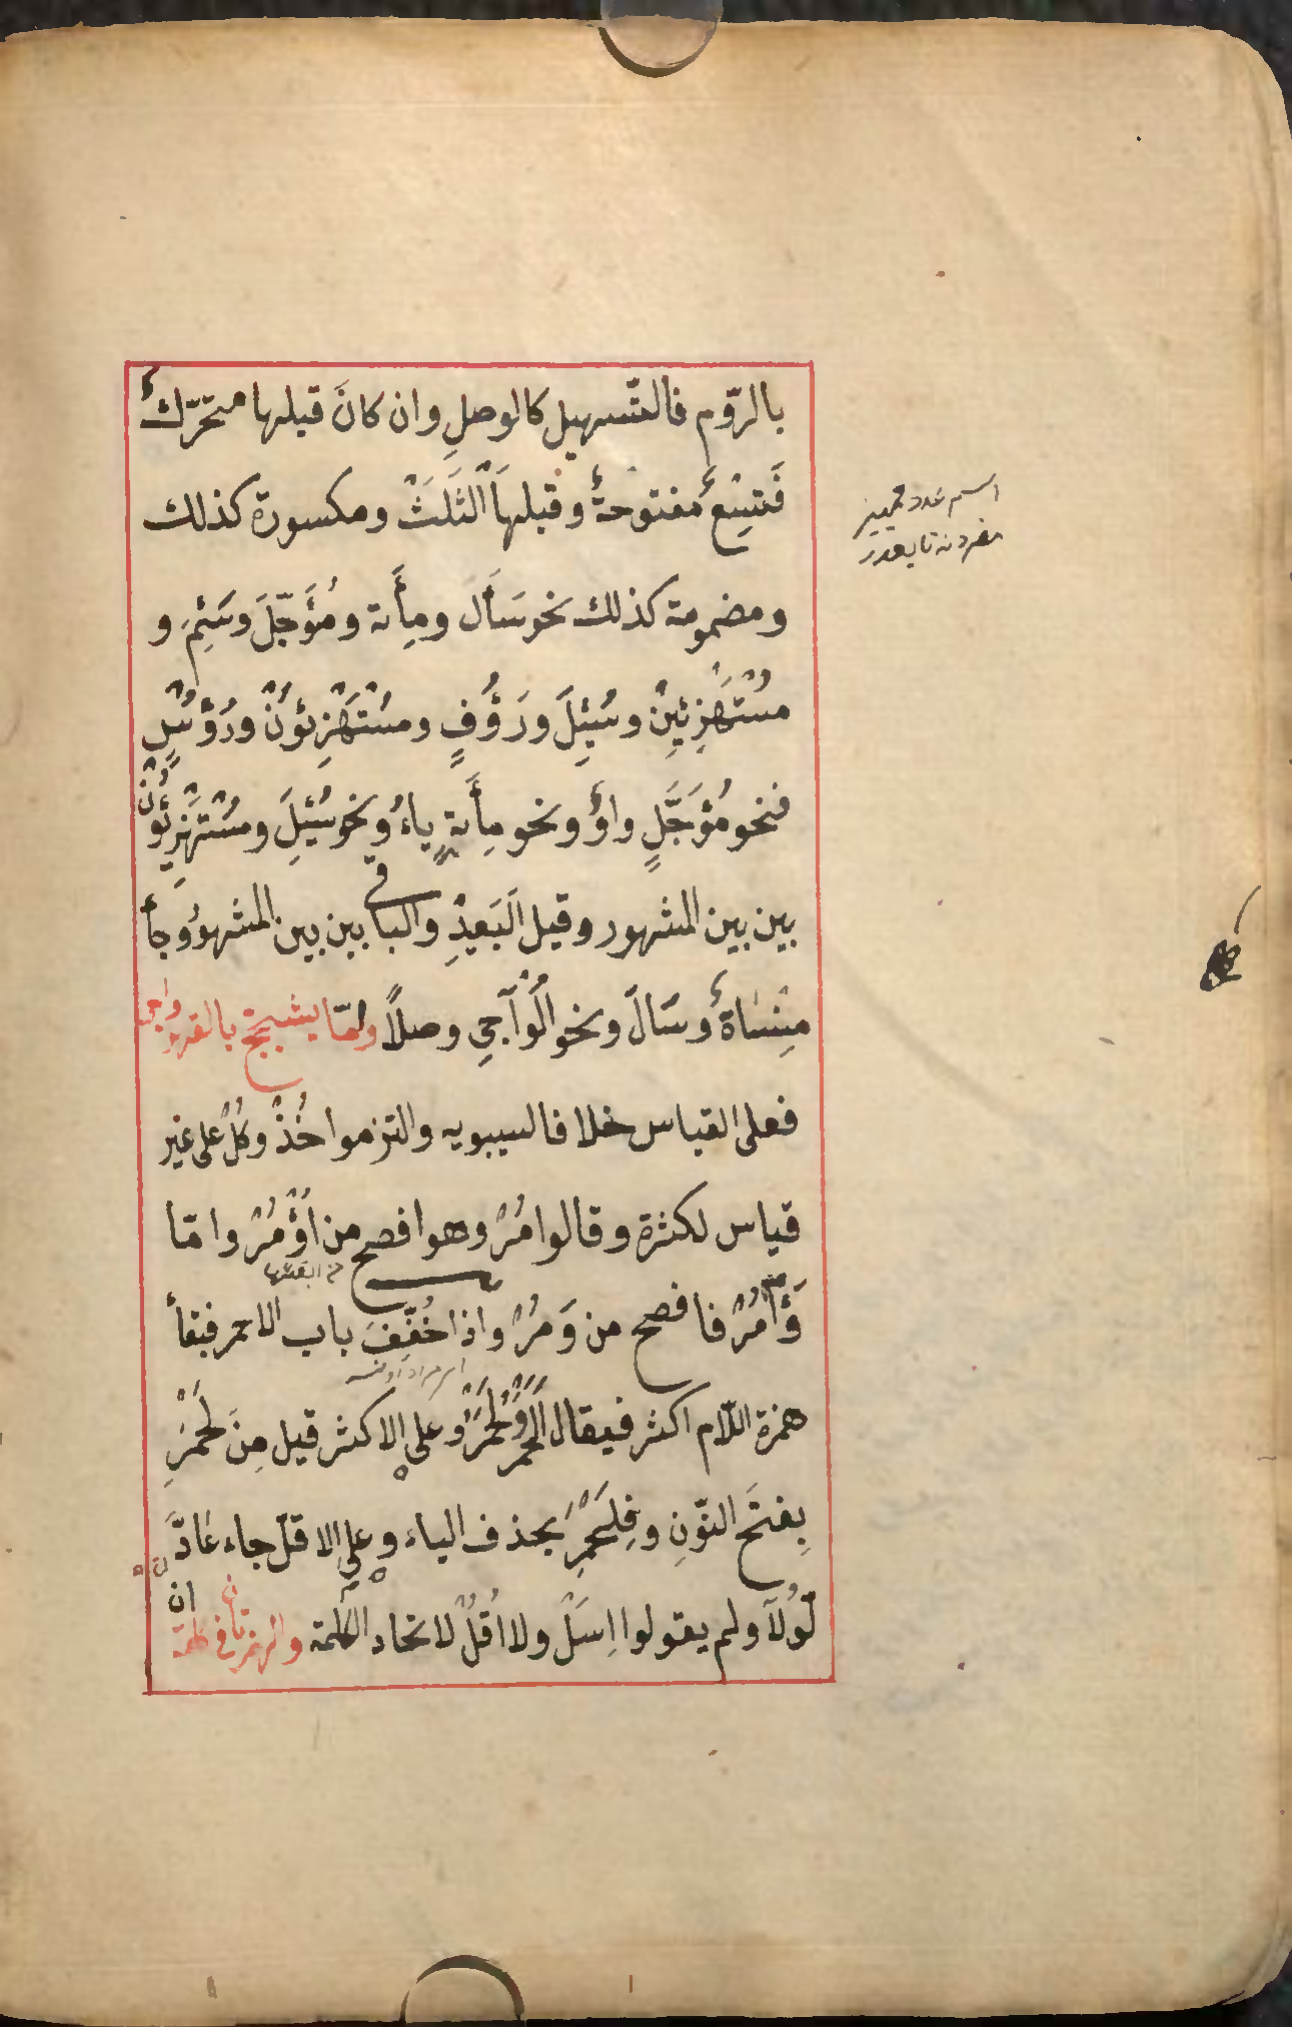 بالرّوم فالتّسهيل كالوصلِ وان كانَ قبلها متحرّكٌ
فَتِسْعٌ مفتوحةٌ وقبلهَا الثَلَثْ ومكسورة كذلك
ومضمومة كذلك نحو سَأَلَ ومِأَة ومُؤَجّلَ وسَئِمَ و
مُسْتَهْزِئِينْ وسُئِلَ ورَؤُفٍ ومسْتَهْزِئُونْ ورُؤُسٍ
فنحو مُؤَجَّلٍ واوٌ ونحو مِأَةٍ ياءٌ ونحو سُئِلَ ومُسْتَهْزِئُونْ
بين بين المشهور وقيل البَعيدِ والباقى بين بين المشهور وجأ
مِنْسَاةٌ وسَالَ ونحو الْوَاجِى وصلاً وامّا يشجّج بالفهر واجى
فعلى القياس خلافا لسيبويه والتزموا خُذْ وكُلْ على غير
قياس لكثرة وقالوا مُرْ وهو افصح من اُؤْمُرْ وامّا
وَأْمُرْ فافصح من وَمُرْ واذا خُفِّفَ باب الاحمر فبقأ
همزة اللّام اكثر فيقال اَلَحْمَرُ ولَحْمَرُ وعلى الاكثر قيل مِنَ لَحْمَرِ
بِفتحَ النّونِ وفِلَحْمَرِ بحذف الياء وعلى الاقلّ جاء عَادَّ
لُّولَا ولم يقولوا اِسَلْ ولا اُقُلْ لاتحاد الكلمة والهمزتان فى كلمة ان
اسم عدد مميز